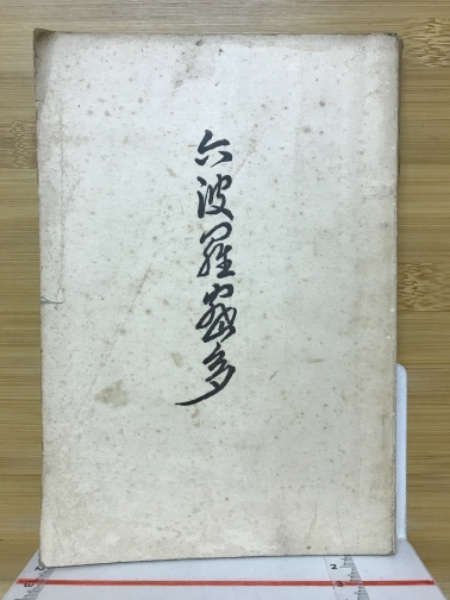 六波羅蜜多